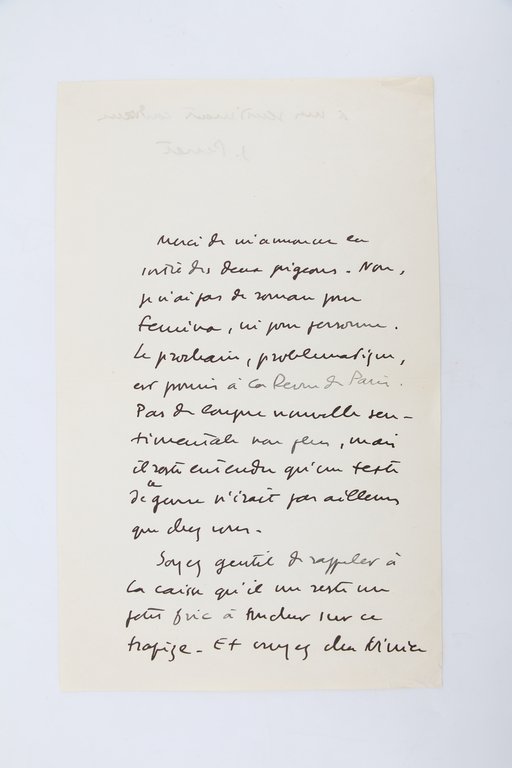 Merci de m'annoncer la
sortie des deux pigeons. Non,
je n'ai pas de roman pour
Femina, ni pour personne.
Le prochain, problématique,
est promis à la Revue de Paris.
Pas de longue nouvelle sen-
timentale non plus, mais
il reste entendu qu'un texte
de ce genre n'irait pas ailleurs
que chez vous.
Soyez gentil de rappeler à
la caisse qu'il me reste un
petit fric à toucher sur ce
trapèze. Et croyez cher
J. Perret